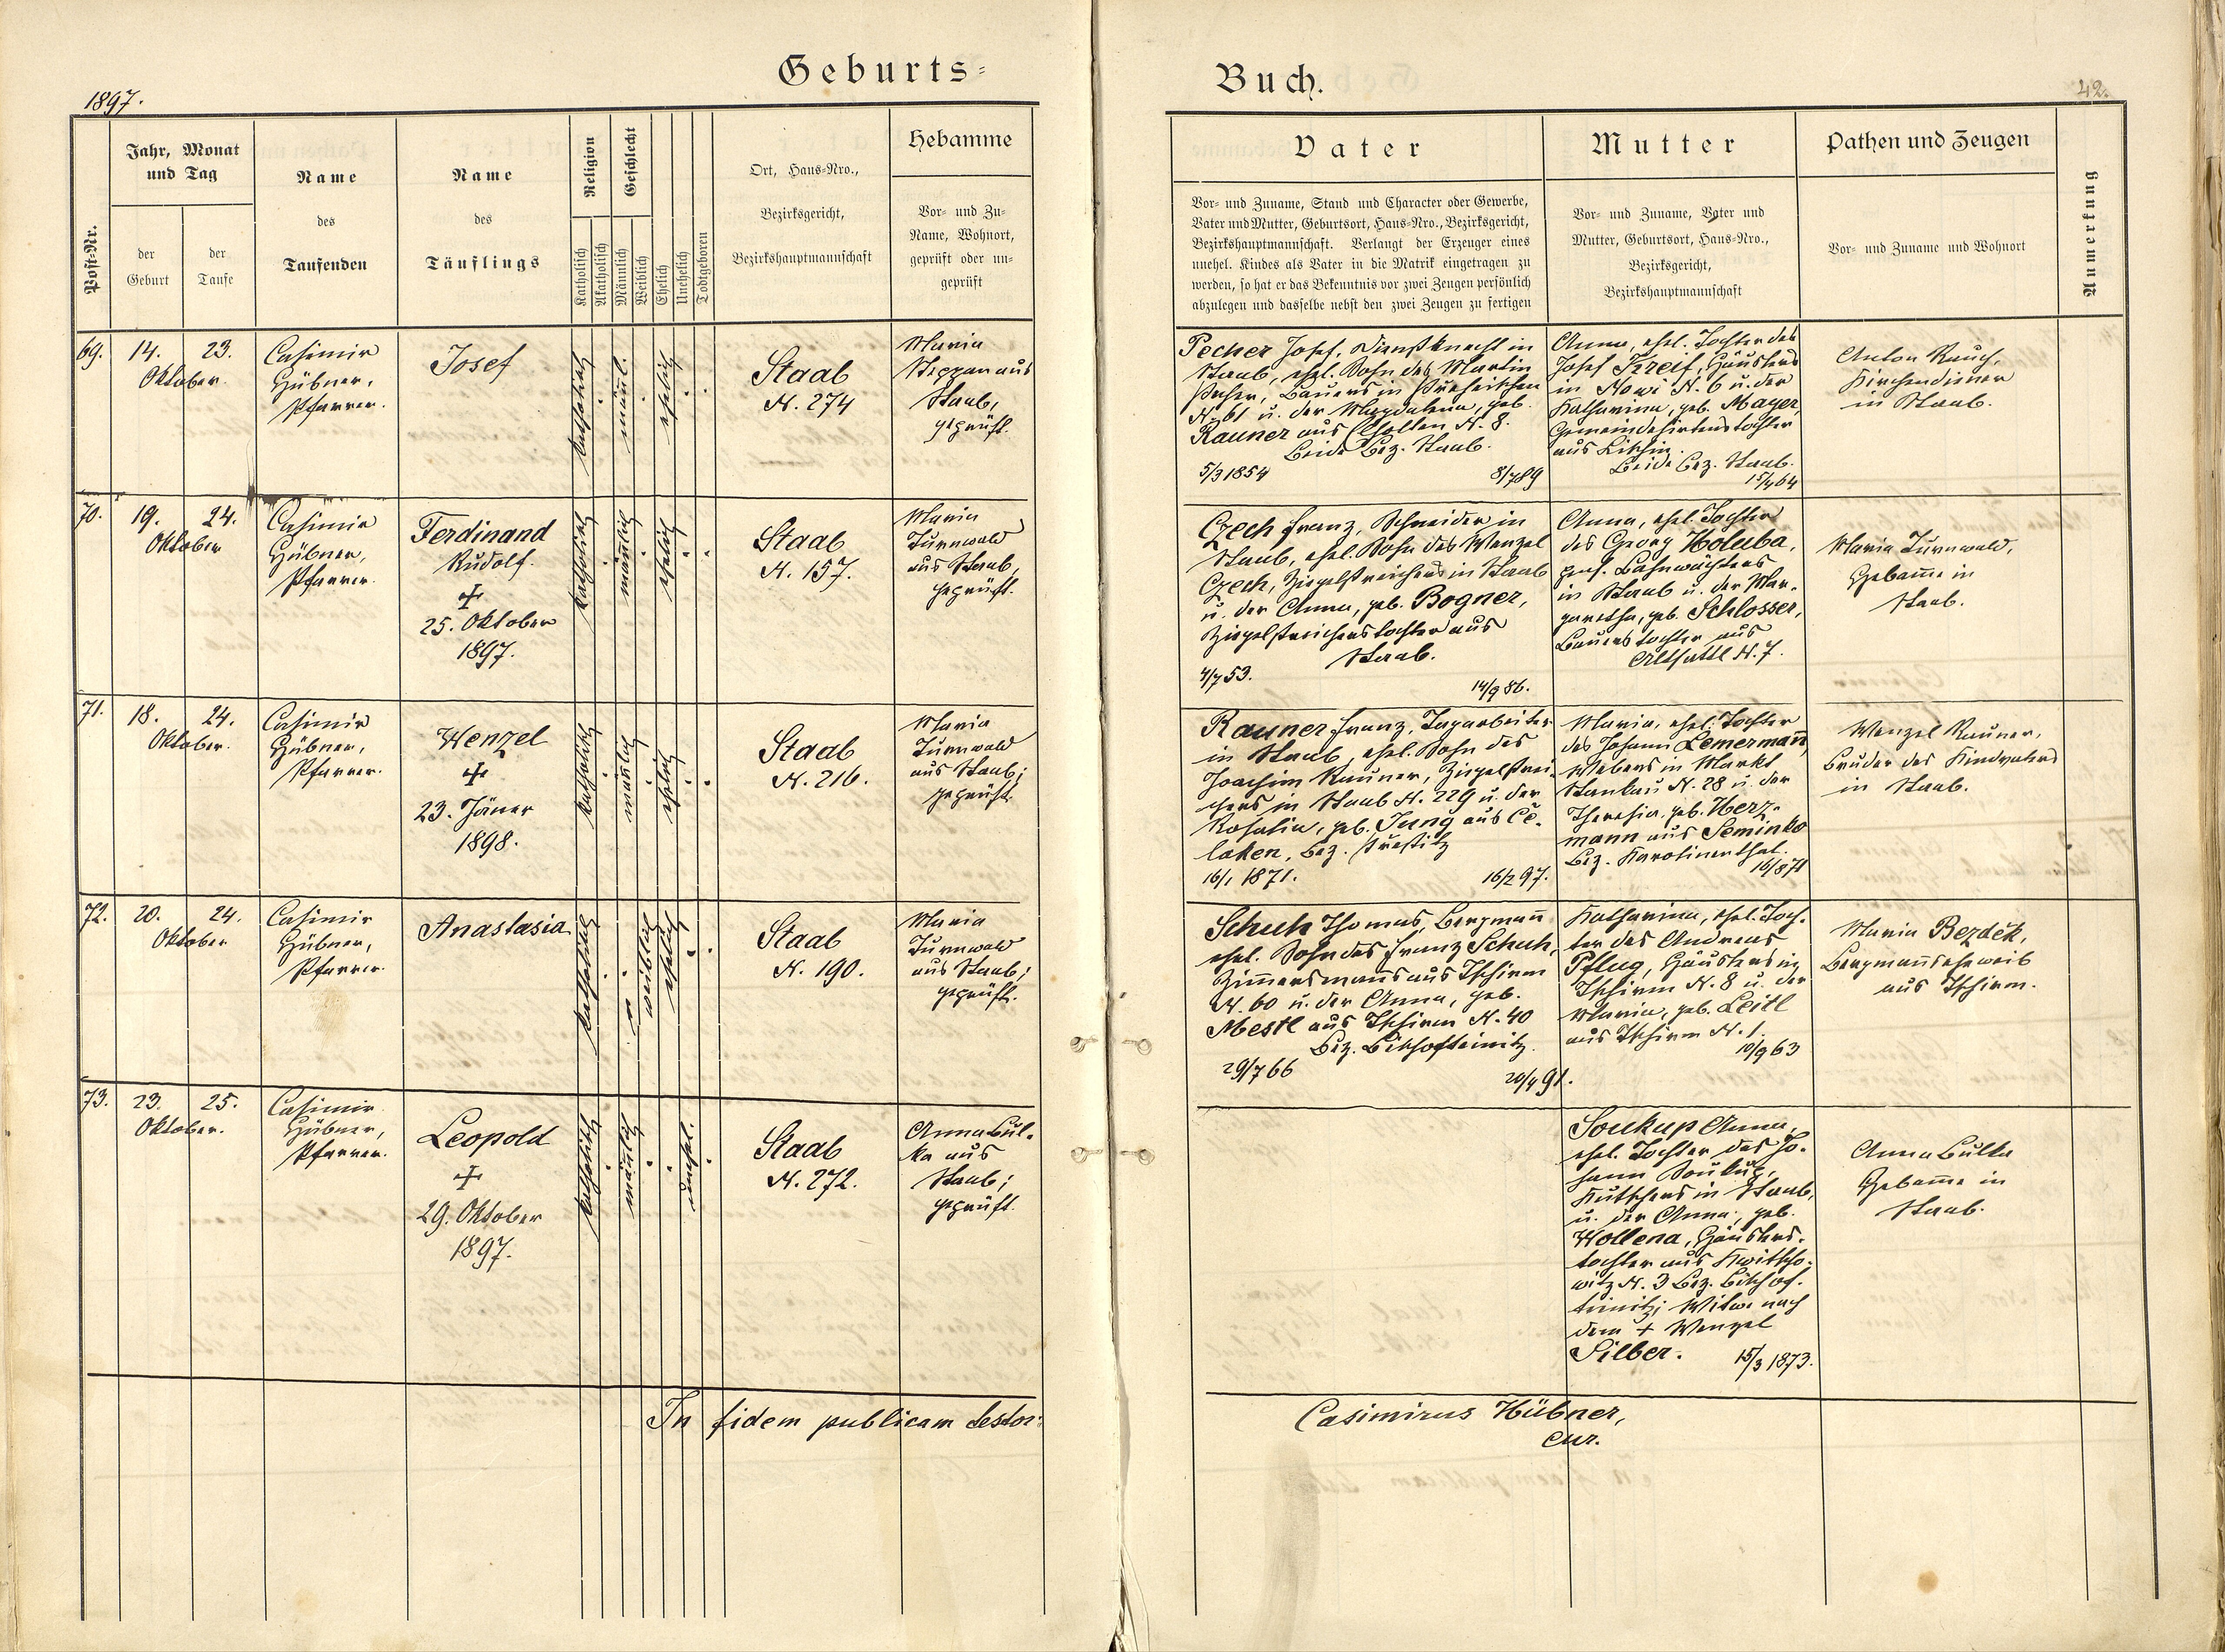 Geburts-
1897.
Post-Nr.
Jahr, Monat
und Tag
der
Geburt
der
Taufe
Name
des
Taufenden
Name
des
Täuflings
Religion
Katholisch
Akatholisch
Geschlecht
Männlich
Weiblich
Ehelich
Unehelich
Todtgeboren
Ort, Haus-Nro.,
Bezirksgericht,
Bezirkshauptmannschaft
Hebamme
Vor- und Zu-
Name, Wohnort,
geprüft oder un-
geprüft
69.
14.
23.
Oktober.
Casimir
Hübner,
Pfarrer.
Josef
katholisch
männl.
ehelich
Staab
N. 274
Maria
Steppan aus
Staab,
geprüft.
70.
19.
24.
Oktober
Casimir
Hübner,
Pfarrer.
Ferdinand
Rudolf.
+
25. Oktober
1897.
katholisch
männlich
ehelich
Staab
N. 157.
Maria
Turnwald
aus Staab,
geprüft.
71.
18.
24.
Oktober.
Casimir
Hübner,
Pfarrer.
Wenzel
+
23. Jäner
1898.
katholisch
männlich
ehelich
Staab
N. 216.
Maria
Turnwald
aus Staab;
geprüft.
72.
20.
24.
Oktober
Casimir
Hübner,
Pfarrer.
Anastasia
katholisch
weiblich
ehelich
Staab
N. 190.
Maria
Turnwald
aus Staab;
geprüft.
73.
23.
25.
Oktober.
Casimir
Hübner,
Pfarrer.
Leopold
+
29. Oktober
1897.
katholisch
männlich
unehel.
Staab
N. 272.
Anna Bul-
ka aus
Staab;
geprüft.
In fidem publicam testor:
Buch.
42.
Vater
Vor- und Zuname, Stand und Character oder Gewerbe,
Vater und Mutter, Geburtsort, Haus-Nro., Bezirksgericht,
Bezirkshauptmannschaft. Verlangt der Erzeuger eines
unehel. Kindes als Vater in die Matrik eingetragen zu
werden, so hat er das Bekenntnis vor zwei Zeugen persönlich
abzulegen und dasselbe nebst den zwei Zeugen zu fertigen
Mutter
Vor- und Zuname, Vater und
Mutter, Geburtsort, Haus-Nro.,
Bezirksgericht,
Bezirkshauptmannschaft
Pathen und Zeugen
Vor- und Zuname und Wohnort
Anmerkung
Pecher Josef, Dienstknecht in
Staab, ehel. Sohn des Martin
Pecher, Bauers in
N. 61 u. der Magdalena, geb.
Rauner aus Cholten N. 8.
Beide Bez. Staab.
5/3 1854
8/7 89
Anna, ehel. Tochter des
Josef Kreif, Häuslers
in Nowi N. 6 u. der
Katharina, geb. Mayer,
Gemeindehirtenstochter
aus Litzin.
Beide Bez. Staab.
15/4 64
Anton Rauch,
Kirchendiener
in Staab.
Czech Franz, Schneider in
Staab, ehel. Sohn des Wenzel
Czech, Ziegelstreichers in Staab
u. der Anna, geb. Bogner,
Ziegelstreicherstochter aus
Staab.
4/7 53.
14/9 86.
Anna, ehel. Tochter
des Georg Holuba,
pens. Bahnwächters
in Staab u. der Mar-
garetha, geb. Schlosser,
Bauerstochter aus
Altsattl N. 7.
Maria Turnwald,
Hebame in
Staab.
Rauner Franz, Tagarbeiter
in Staab, ehel. Sohn des
Joachim Rauner, Ziegelstrei-
chers in Staab N. 229 u. der
Rosalia, geb. Jung aus Ce-
laken, Bez. Prestitz
16/1 1871.
16/2 97.
Maria, ehel. Tochter
des Johann Lemermann,
Webers in Markt
Stankau N. 28 u. der
Theresia, geb. Herz-
mann aus Seminko
Bez. Karolinenthal.
16/8 71
Wenzel Rauner,
Bruder des Kindvaters
in Staab.
Schuh Thomas, Bergmann
ehel. Sohn des Franz Schuh,
Zimmermanns aus Tschirm
N. 60 u. der Anna, geb.
Mestl aus Tschirm N. 40
Bez. Bischofteinitz.
29/7 66
20/4 91.
Katharina, ehel. Toch-
ter des Andreas
Pflug, Häuslers in
Tschirm N. 8 u. der
Maria, geb. Leitl
aus Tschirm N. 1.
10/9 63
Maria Bezděk,
Bergmannseheweib
aus Tschirm.
Soukup Anna,
ehel. Tochter des Jo-
hann Soukup,
Kutschers in Staab,
u. der Anna, geb.
Wollena, Häuslers-
tochter aus Kwitscho-
witz N. 3 Bez. Bischof-
teinitz; Witwe nach
dem + Wenzel
Silber.
15/3 1873.
Anna Bulka
Hebame in
Staab.
Casimirus Hübner,
cur.